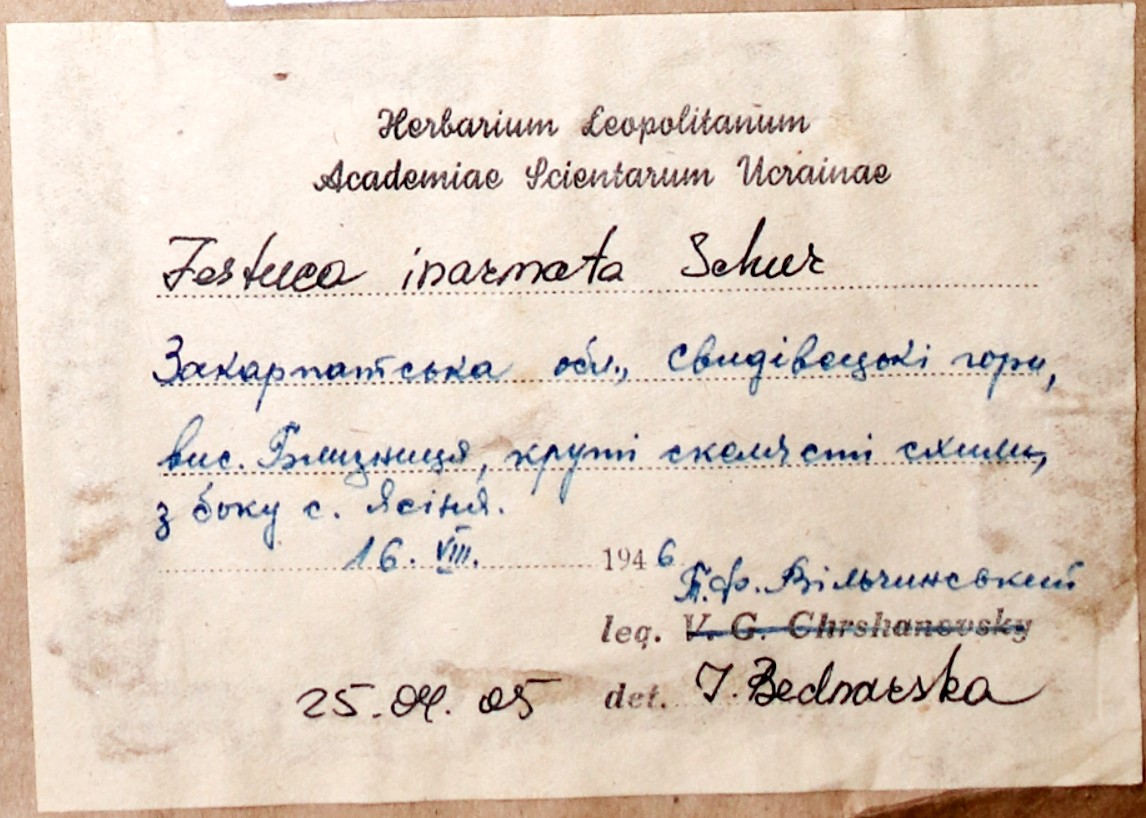 Herbarium Leopolitanum
Academiae Scientarum Ucrainae
Festuca inarmata Schur
Закарпатська обл., Свидівецькі гори,
вис. Близниця, круті скелясті схили,
з боку с. Ясіня.
16. VIII. 1946
Т.Ф. Вільчинський
leg. V. G. Chrshanovsky
25.04.05 det. I. Bednarska